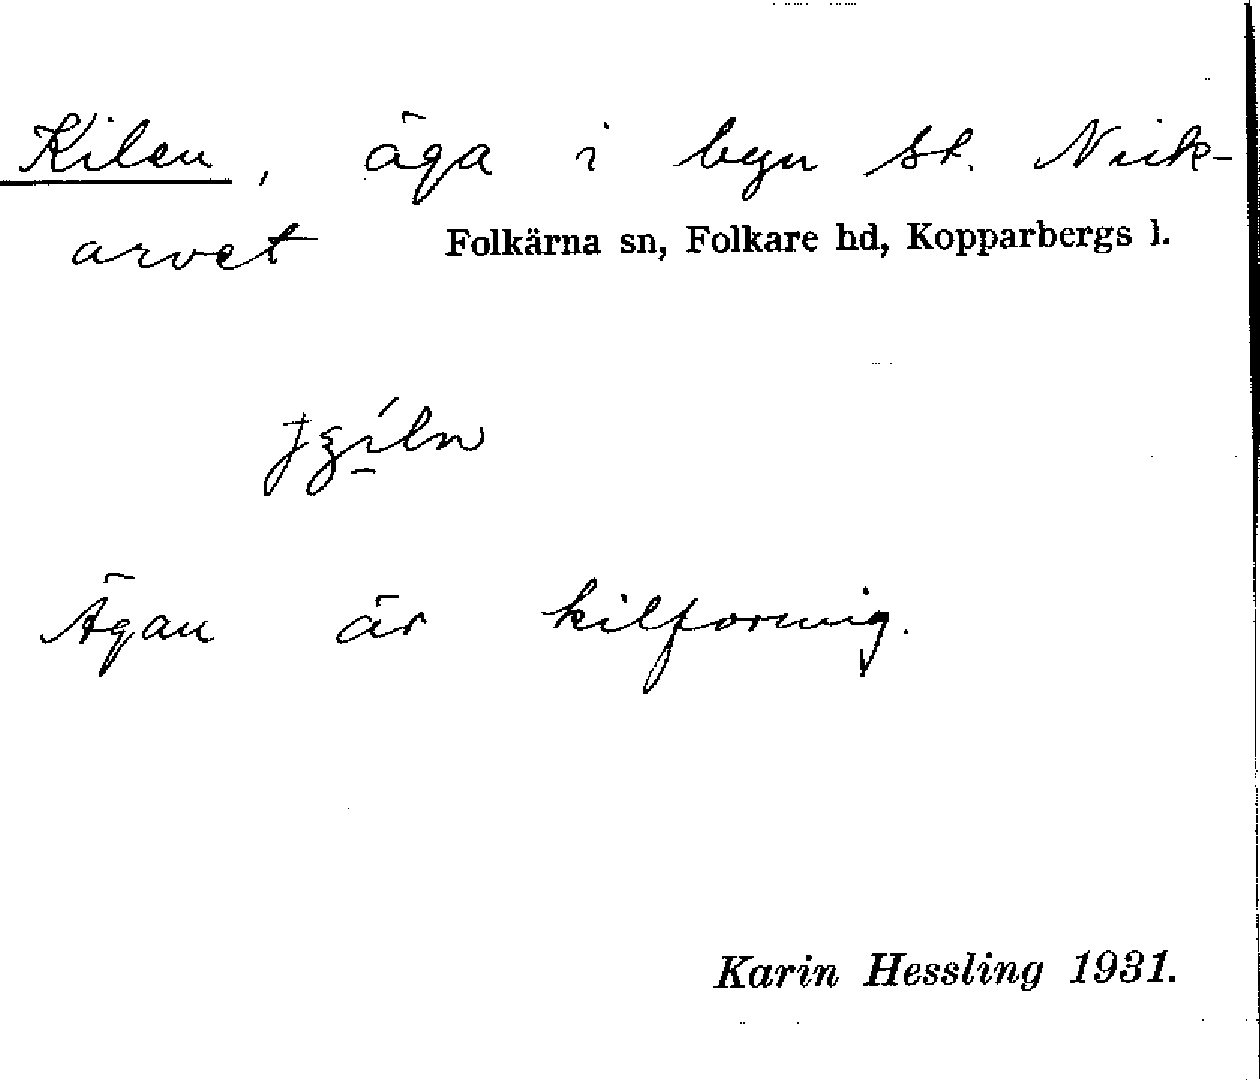 Kilen, äga i byn St. Nick-
arvet Folkärna sn, Folkare hd, Kopparbergs l.
Ägan är kilformig.
Karin Hessling 1931.